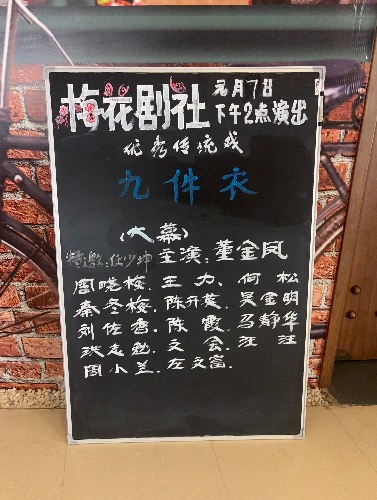 梅花剧社 元月7日
下午2点演出
优秀传统戏
九件衣
(大幕)
特邀:任少坤 主演:董金凤
周晓梅、王力、何松
秦冬梅、陈升英、吴金明
刘佐香、陈霞、马静华
洪志勉、文会、汪汪
周小兰、左文富、